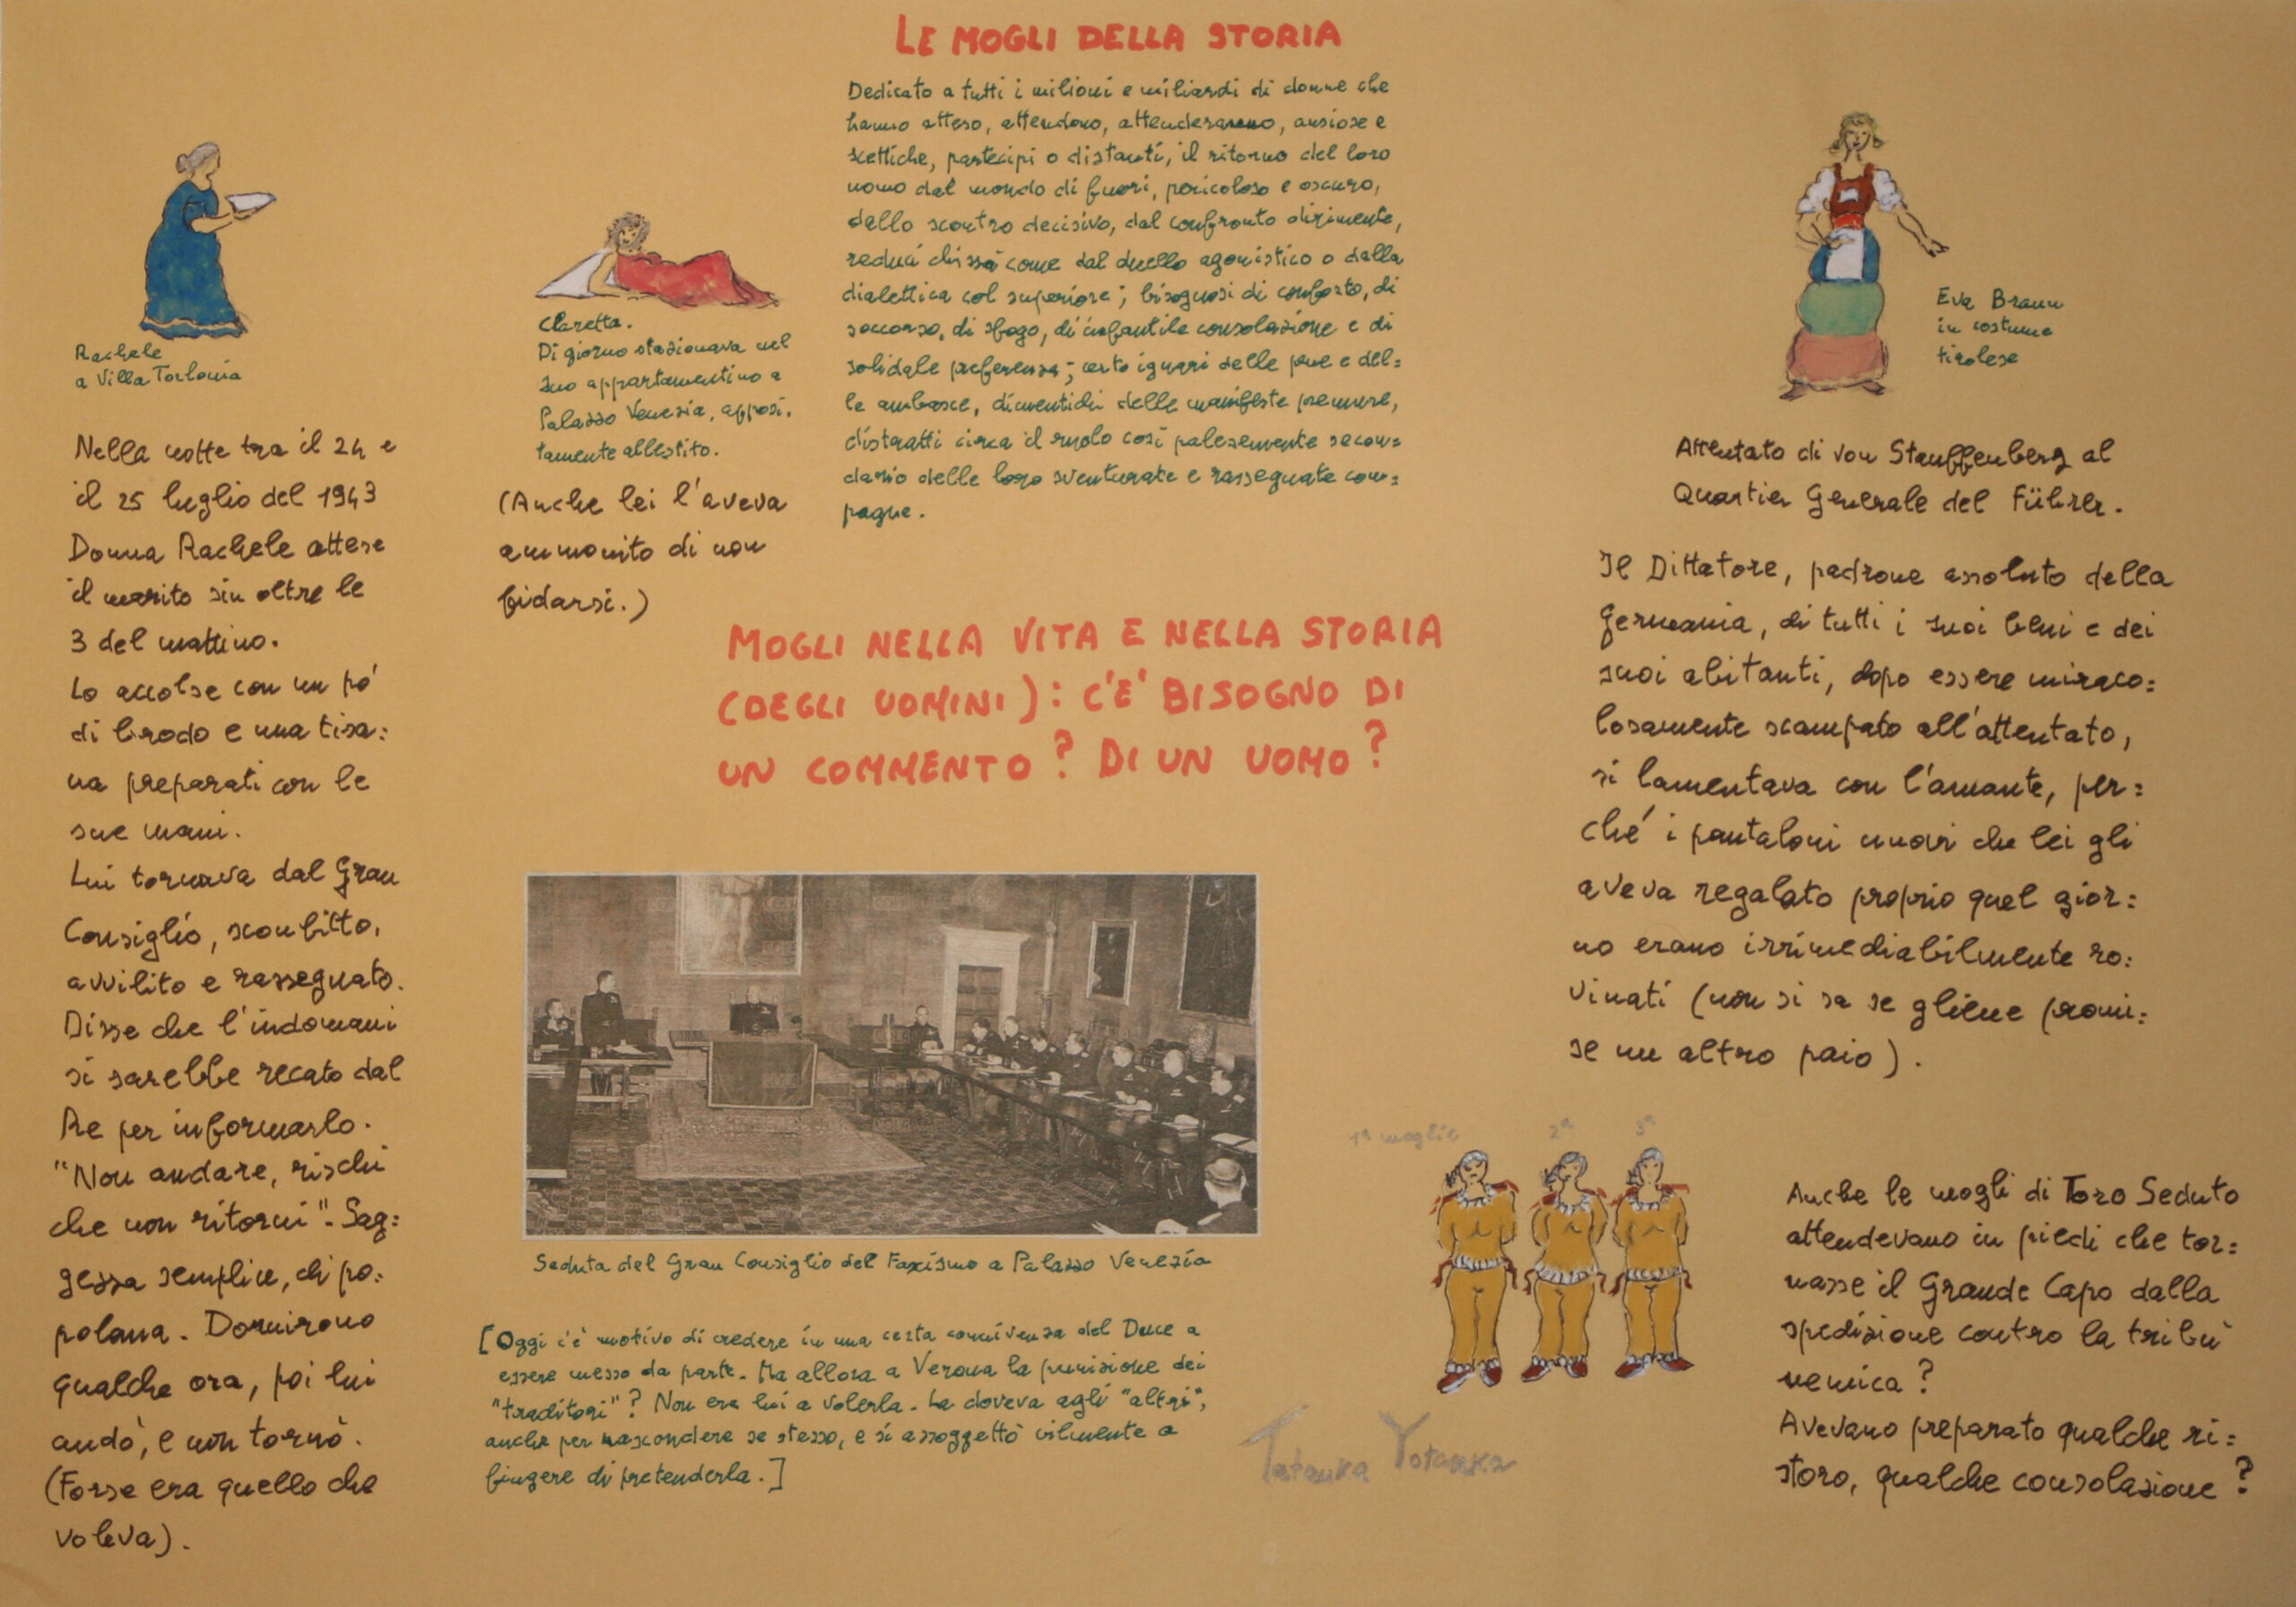 LE MOGLI DELLA STORIA
Dedicato a tutti i milioni e miliardi di donne che
hanno atteso, attendono, attenderanno, ansiose e
scettiche, partecipi o distanti, il ritorno del loro
uomo dal mondo di fuori, pericoloso e oscuro,
dallo scontro decisivo, dal confronto dirimente,
reduci chissà come dal duello agonistico o dalla
dialettica col superiore; bisognosi di conforto, di
soccorso, di sfogo, di infantile consolazione e di
solidale preferenza; certo ignari delle pene e del=
le ambasce, dimentichi delle manifeste premure,
distratti circa il ruolo così palesemente secon=
dario delle loro sventurate e rassegnate com=
pagne.
Rachele
a Villa Torlonia
Nella notte tra il 24 e
il 25 luglio del 1943
Donna Rachele attese
il marito sin oltre le
3 del mattino.
Lo accolse con un po'
di brodo e una tisa=
na preparati con le
sue mani.
Lui tornava dal Gran
Consiglio, sconfitto,
avvilito e rassegnato.
Disse che l'indomani
si sarebbe recato dal
Re per informarlo.
"Non andare, rischi
che non ritorni". Sag=
gezza semplice, di po=
polana. Dormirono
qualche ora, poi lui
andò, e non tornò.
(Forse era quello che
voleva).
Claretta.
Di giorno stazionava nel
suo appartamentino a
Palazzo Venezia, apposi=
tamente allestito.
(Anche lei l'aveva
ammonito di non
fidarsi.)
MOGLI NELLA VITA E NELLA STORIA
(DEGLI UOMINI): C'E' BISOGNO DI
UN COMMENTO? DI UN UOMO?
Seduta del Gran Consiglio del Fascismo a Palazzo Venezia
[Oggi c'è motivo di credere in una certa connivenza del Duce a
essere messo da parte. Ma allora a Verona la punizione dei
"traditori"? Non era lui a volerla. La doveva agli "altri",
anche per nascondere se stesso, e si assoggettò vilmente a
fingere di pretenderla.]
Eva Braun
in costume
tirolese
Attentato di von Stauffenberg al
Quartier Generale del Führer.
Il Dittatore, padrone assoluto della
Germania, di tutti i suoi beni e dei
suoi abitanti, dopo essere miraco=
losamente scampato all'attentato,
si lamentava con l'amante, per=
ché i pantaloni nuovi che lei gli
aveva regalato proprio quel gior=
no erano irrimediabilmente ro=
vinati (non si sa se gliene promi=
se un altro paio).
1ª moglie 2ª 3ª
Tatanka Yotanka
Anche le mogli di Toro Seduto
attendevano in piedi che tor=
nasse il Grande Capo dalla
spedizione contro la tribù
nemica?
Avevano preparato qualche ri=
storo, qualche consolazione?